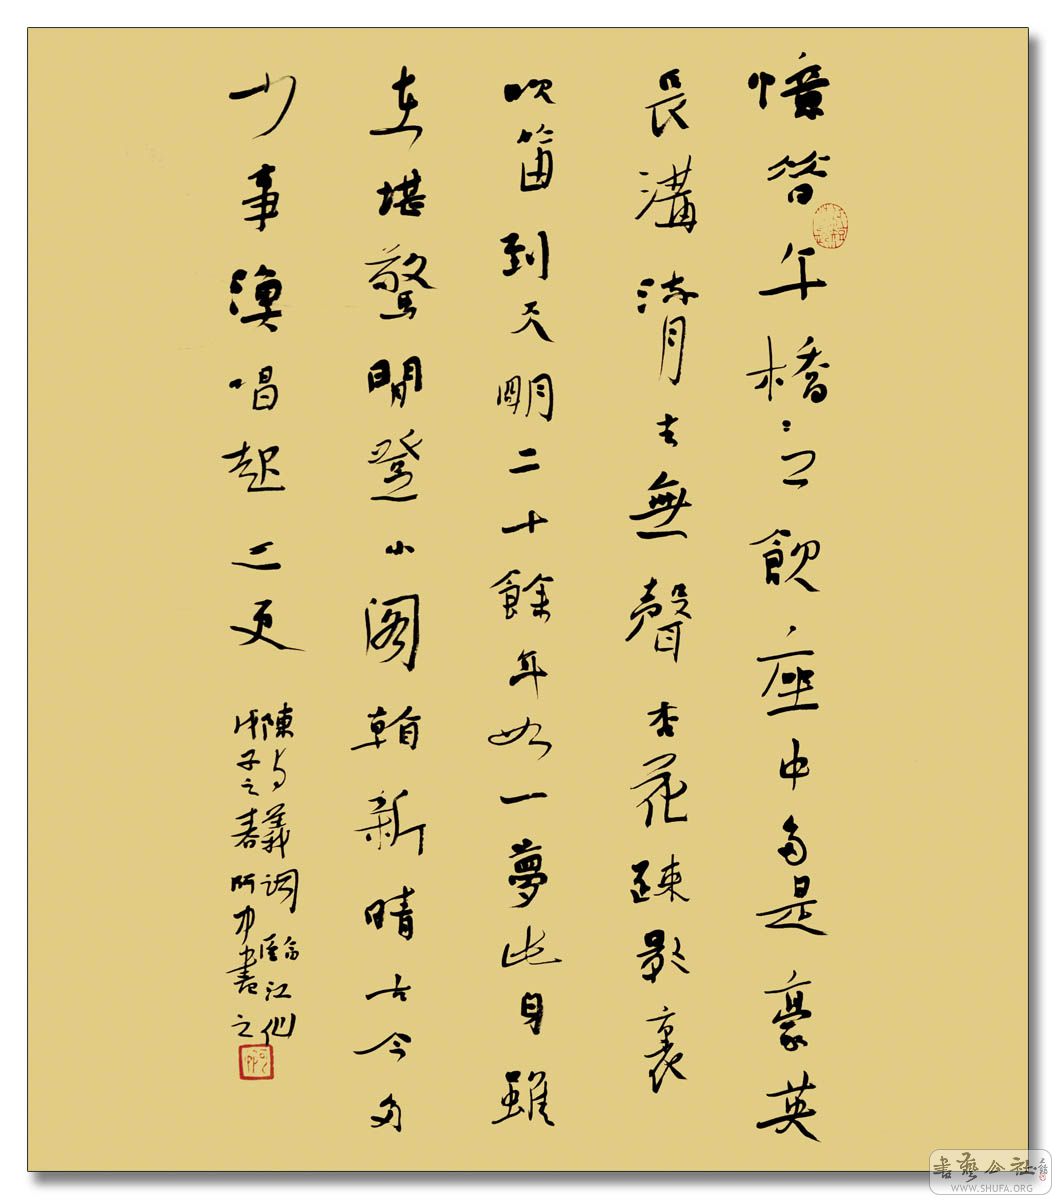 憶昔午橋〻上飲座中多是豪英
長溝流月去無聲杏花疎影裏
吹笛到天明二十餘年如一夢此身雖
在堪驚閒登小閣看新晴古今多
少事漁唱起三更
陳与義詞臨江仙
戊子之春阿書之
書藝公社
WWW.SHUFA.ORG